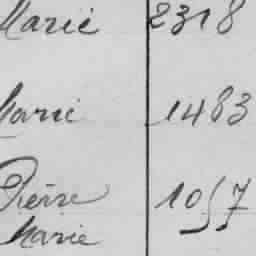 Marie 2318
Marie 1483
Pierre 1057
Marie